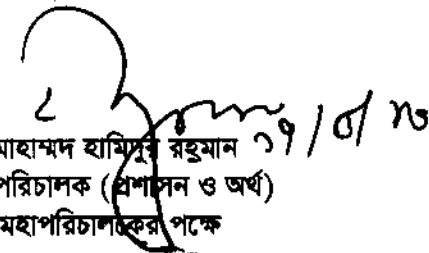 মোহাম্মদ হামিদুর রহমান
পরিচালক (প্রশাসন ও অর্থ)
মহাপরিচালকের পক্ষে